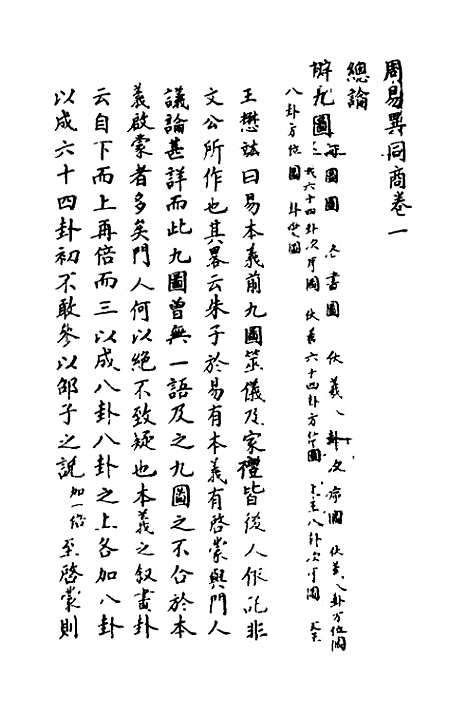 周易異同商卷一
總論
辨九圖河圖圖 洛書圖 伏羲八卦次序圖 伏羲八卦方位圖
伏羲六十四卦次序圖 伏羲六十四卦方位圖 文王八卦次序圖 文王
八卦方位圖 卦變圖
王懋竑曰易本義前九圖筮儀及家禮皆後人依託非
文公所作也其畧云朱子於易有本義有啓蒙與門人
議論甚詳而此九圖曾無一語及之九圖之不合於本
義啟蒙者多矣門人何以絕不致疑也本義之叙畫卦
云自下而上再倍而三以成八卦八卦之上各加八卦
以成六十四卦初不敢參以邵子之說加一倍至啓蒙則